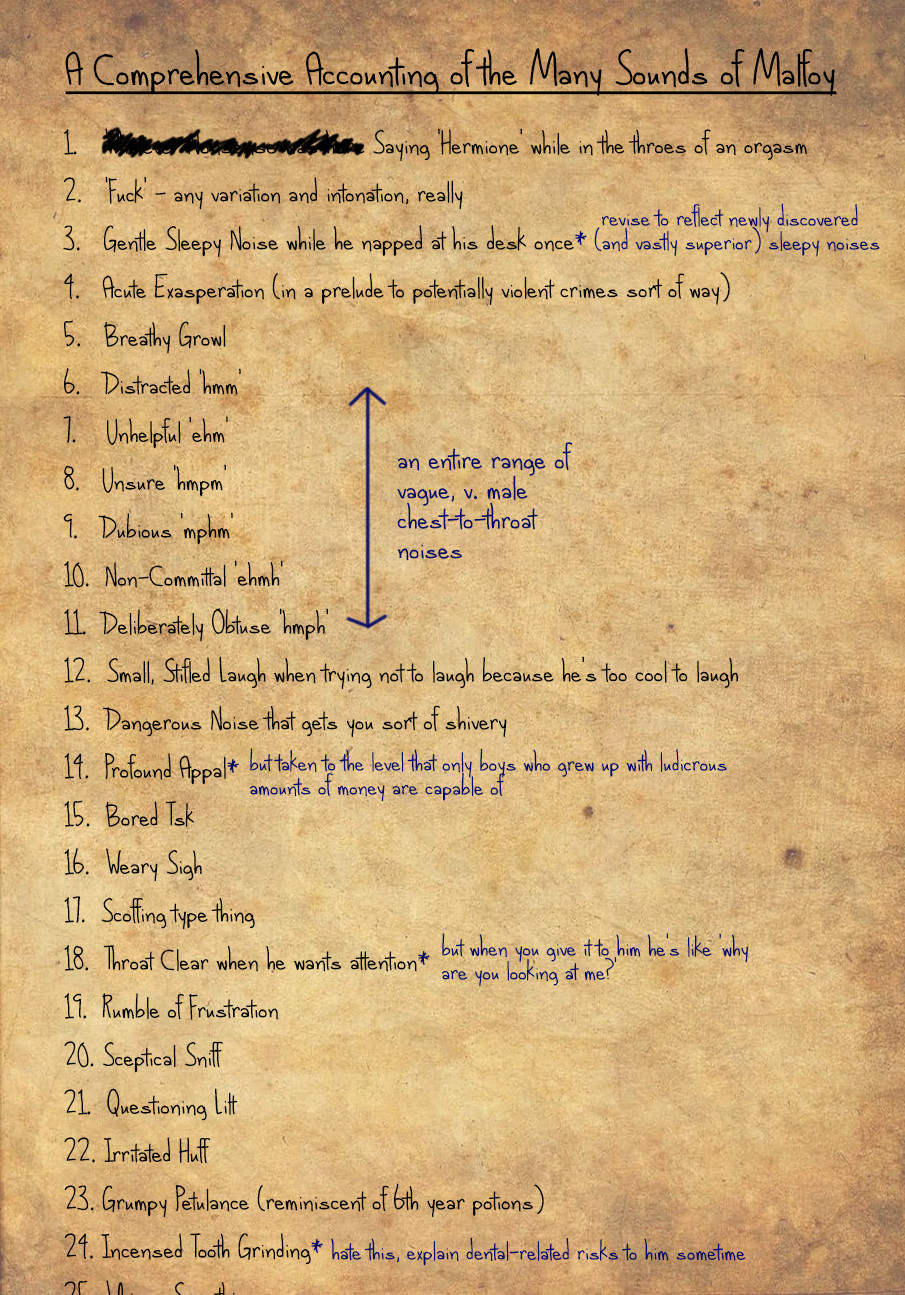 A Comprehensive Accounting of the Many Sounds of Malfoy
1. Saying 'Hermione' while in the throes of an orgasm
2. 'Fuck' – any variation and intonation, really
3. Gentle Sleepy Noise while he napped at his desk once* revise to reflect newly discovered
(and vastly superior) sleepy noises
4. Acute Exasperation (in a prelude to potentially violent crimes sort of way)
5. Breathy Growl
6. Distracted 'hmm'
7. Unhelpful 'ehm'
8. Unsure 'hmpm'
9. Dubious 'mphm'
10. Non-Committal 'ehmh'
11. Deliberately Obtuse 'hmph'
an entire range of
vague, v. male
chest-to-throat
noises
12. Small, Stifled Laugh when trying not to laugh because he's too cool to laugh
13. Dangerous Noise that gets you sort of shivery
14. Profound Appal* but taken to the level that only boys who grew up with ludicrous
amounts of money are capable of
15. Bored Tsk
16. Weary Sigh
17. Scoffing type thing
18. Throat Clear when he wants attention* but when you give it to him he's like 'why
are you looking at me?'
19. Rumble of Frustration
20. Sceptical Sniff
21. Questioning Lilt
22. Irritated Huff
23. Grumpy Petulance (reminiscent of 6th year potions)
24. Incensed Tooth Grinding* hate this, explain dental-related risks to him sometime
25.